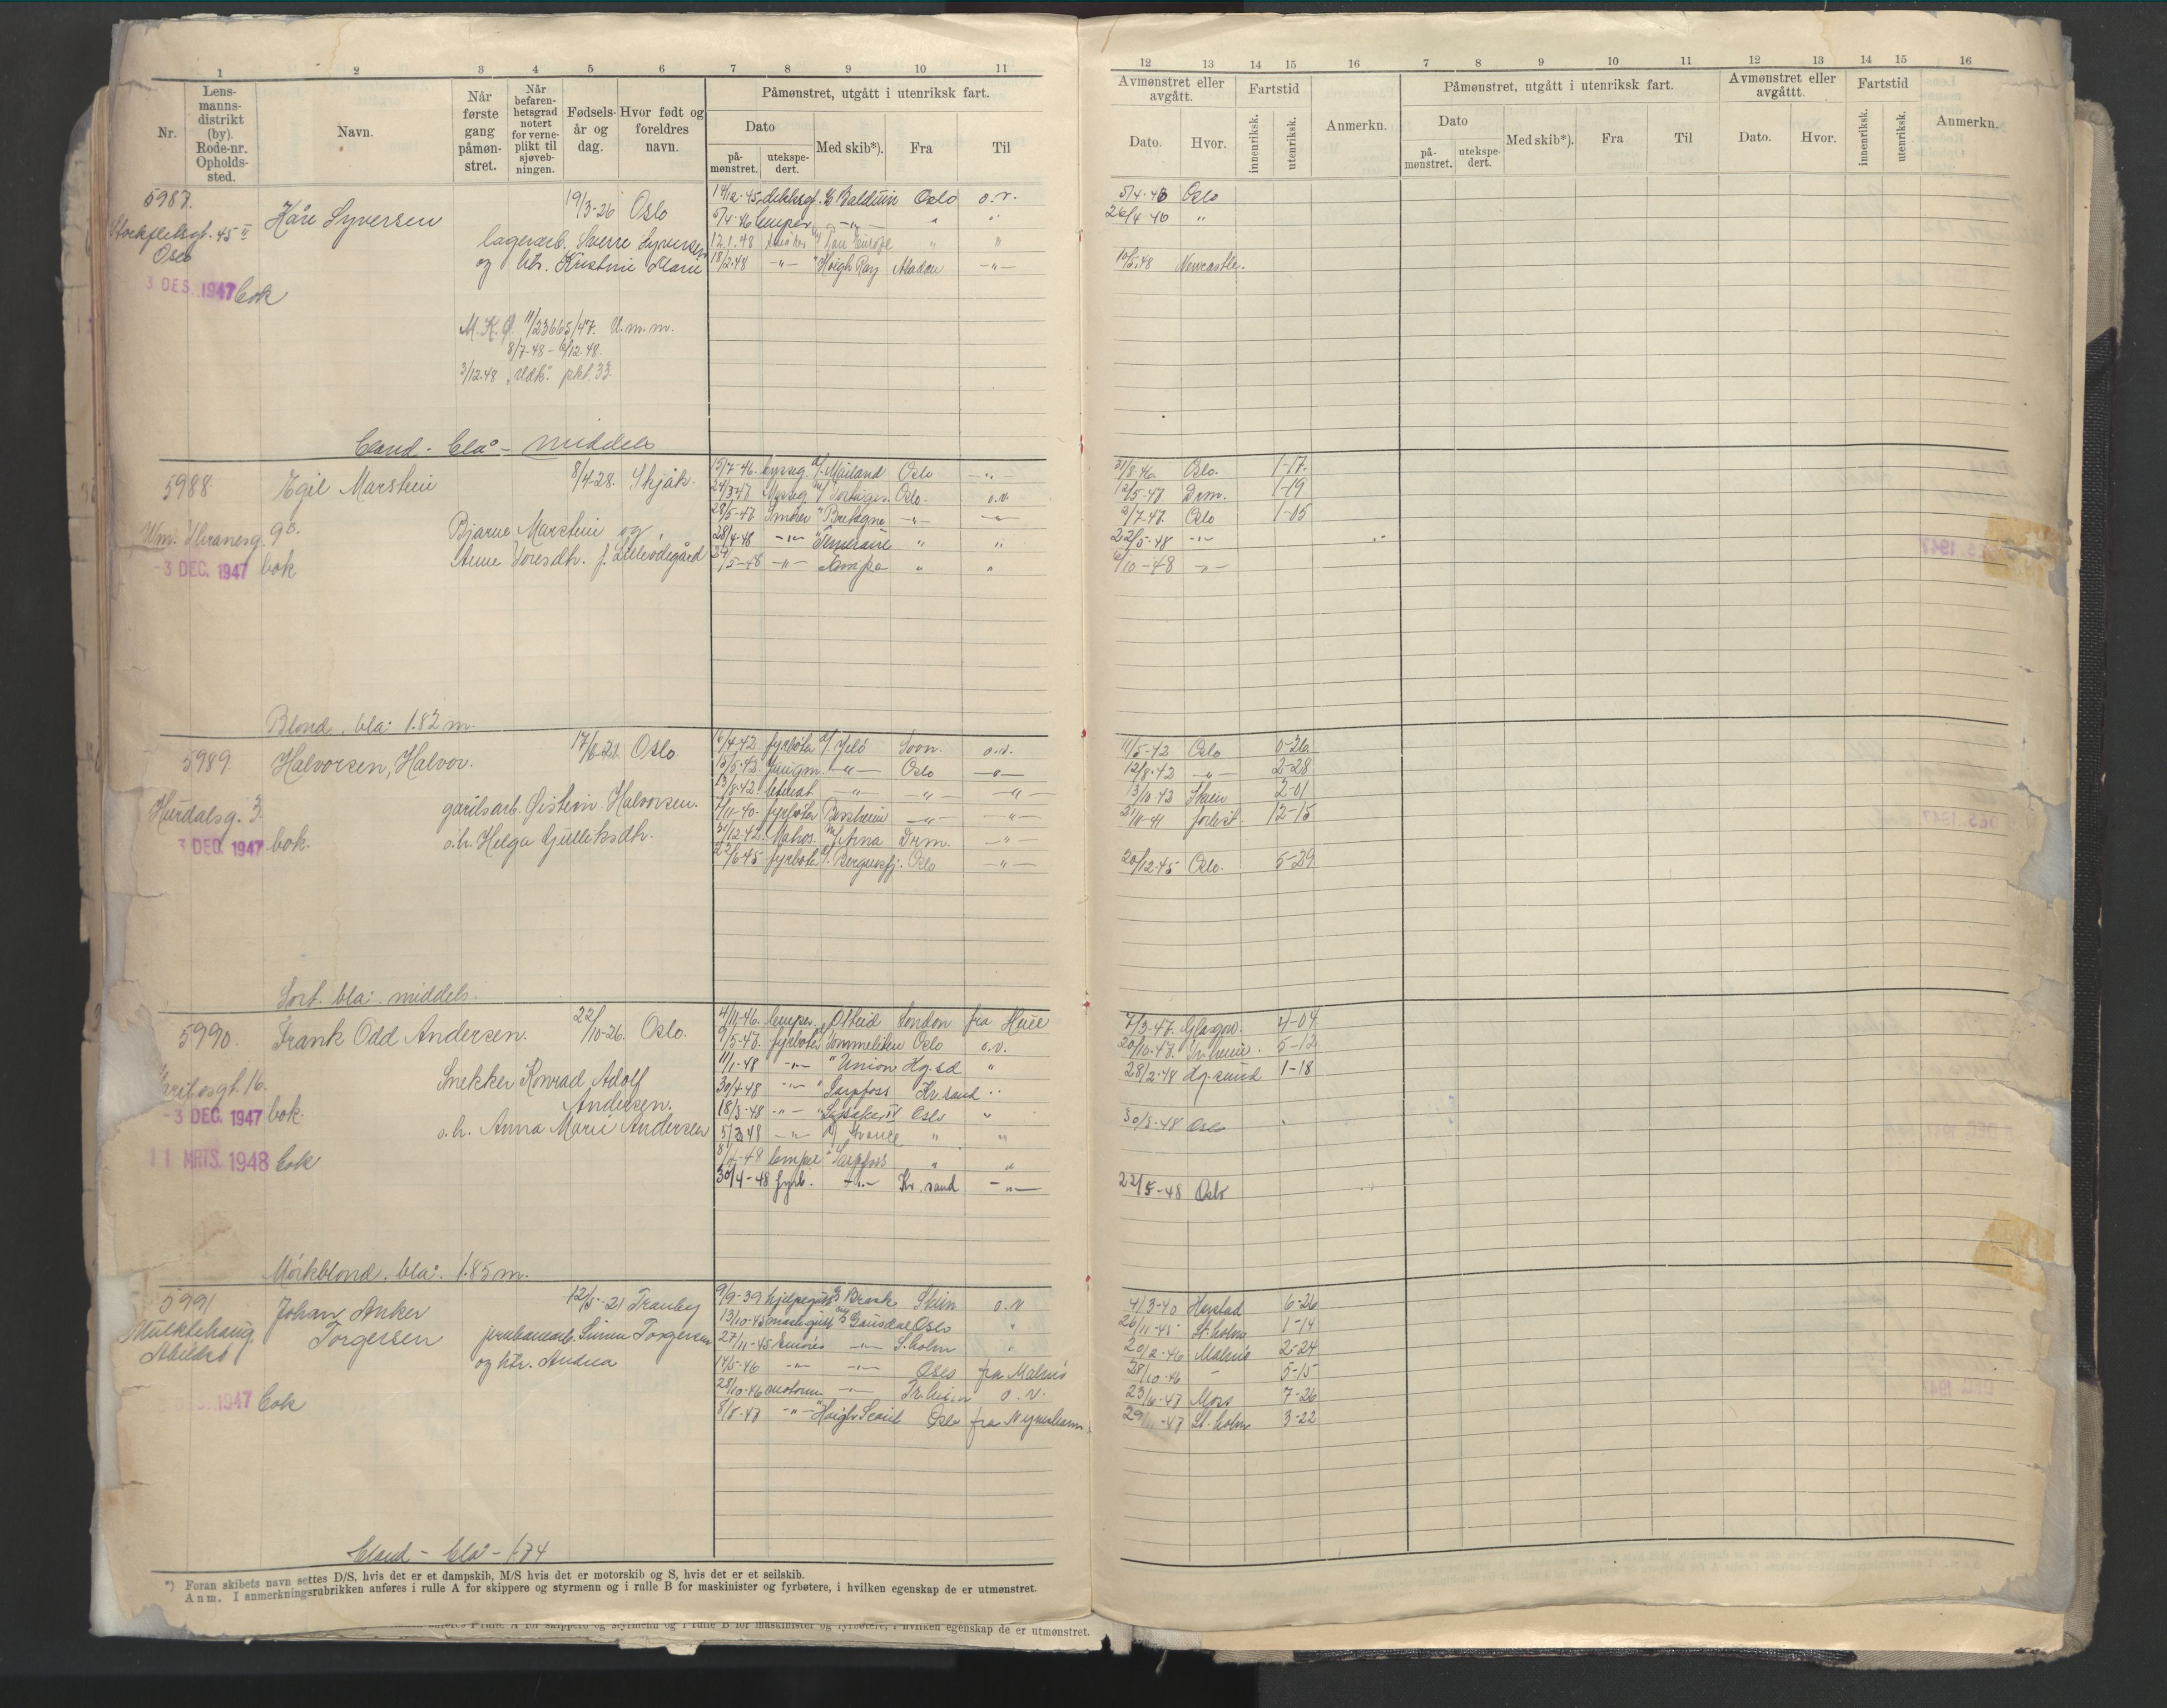 1 2 3 4 5 6 7 8 9 10 11
Nr. Lensmannsdistrikt (by). Rode-nr. Opholdssted. Navn. Når første gang påmønstret. Når befarenhetsgrad notert for verneplikt til sjøvebningen. Fødselsår og dag. Hvor født og foreldres navn. Påmønstret, utgått i utenriksk fart.
Dato Med skib*). Fra Til
påmønstret. utekspedert.
5987. Kåre Syversen 19/3-26 Oslo 14/12-45 Balduin Oslo o.v.
45 II 5/4-46 lemper -"- " "
Oslo lagerarb. Sverre Syversen 12.1.48 " "
og htr. Kristine Marie 18/2.48 -"- " Høigh Ray Abadan -"-
3 DES. 1947 bok
M.K.O. 11/23665/47. U.m.m.
8/7-48 - 6/12.48.
3/12.48 "Udk." pkt. 33.
bland - blå - middels
5988. Egil Marstein 8/4-28. Skjåk. 15/7-46. bysseg. D/ Mailand Oslo -"-
24/3-47 M/ Oslo. o.v.
90. Bjarne Marstein og 28/5-47 Smører " Bretagne -"- -"-
28/4-48 -"- " Temeraire " "
-3 DEC. 1947 bok 24/5-48 -"- Tampa " "
Blond. blå. 1.82 m.
5989. Halvorsen, Halvor. 21. Oslo 16/4-42 fyrbøter D/ Jelø Soon. o.v.
15/5-42. Jungm. -"- Oslo -"-
13/8-42. -"- -"- -"-
Hurdalsg. 3. Øistein Halvorsen. 7/11-40. fyrbøter Bessheim -"- -"-
o.h. Helga Gulleiksdh. 31/12.42. Matros. M/ Arna Drm. -"-
3 DEC. 1947 bok. 22/6-45 fyrbøter D/ Bergensfj. Oslo -"-
Sort. blå. middels.
5990. Frank Odd Andersen. 22/10-26. Oslo. 4/11-46. lemper. Østeid London fra Huse
9/5-47. fyrbøter Sommelsten Oslo o.v.
11/1-48 -"- " Union Hg.sd "
16. Snekker Konrad Adolf 30/4-48 -"- " Sarpfoss Kr.sand "
Andersen. 18/3-48 -"- " Lysaker IV Oslo "
-3 DEC. 1947 bok. o.h. Anna Marie Andersen 5/3 48 -"- " "
-48 lemper " Sarpfoss " "
11 MRTS. 1948 bok 30/4-48 fyrb. -"- Kr.sand -"-
Mørkblond. blå. 1.85 m.
5991 Johan Anker 12/5-21 Tranby 9/9-39 hjelpegutt Brask Skien o.v
Torgersen jernbanearb. Simen Torgersen 13/10-45 maskingutt Gausdal Oslo "
og htr. Andrea 27/11-45 Smører -"- S.holm "
14/5-46 -"- -"- Oslo fra Malmø
1947 bok 28/10-46 motorm. -"- Tr.heim o.v.
8/8-47 -"- " Høigh Oslo fra Nynashamn.
bland - blå - 1.74
*) Foran skibets navn settes D/S, hvis det er et dampskib, M/S hvis det er motorskib og S, hvis det er et seilskib.
Anm. I anmerkningsrubrikken anføres i rulle A for skippere og styrmenn og i rulle B for maskinister og fyrbøtere, i hvilken egenskap de er utmønstret.
rulle A for skippere og styrmenn og i rulle B for maskinister og fyrbøtere, i hvilken egenskap de er utmønstret.
12 13 14 15 16 7 8 9 10 11 12 13 14 15 16
Avmønstret eller avgått. Fartstid Anmerkn. Påmønstret, utgått i utenriksk fart. Avmønstret eller avgått. Fartstid Anmerkn.
Dato. Hvor. innenriksk. utenriksk. Dato Med skib*). Fra Til Dato. Hvor. innenriksk. utenriksk.
påmønstret. utekspedert.
5/4-46 Oslo
26/4 46 "
10/5.48 Newcastle.
31/8-46 Oslo. 1-17.
12/5-47. Drm. 1-19
2/7-47. Oslo 1-05
22/5-48 -"-
6/10-48 -"-
11/5-42 Oslo 0-26
12/8-42 -"- 2-28
13/10-42 Skien 2-01
21/11-41 forlist. 12-15
20/12-45 Oslo. 5-29
7/3-47. Glasgow. 4-04
20/10-47. Tr.heim. 5-12
28/2-48 Hg.sund 1-18
30/3-48 Oslo
22/5-48 Oslo
4/3-40 Harstad 6-26
26/11-45 St.holm 1-14
20/2-46 Malmø 2-24
28/10-46 " 5-15
23/6-47 Moss 7-26
29/ -47 St.holm 3-22